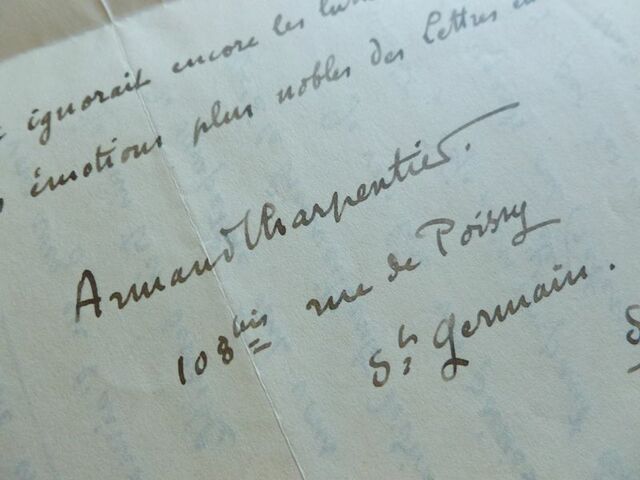 ignorait encore les
émotions plus nobles des lettres
Armand Charpentier.
108 bis rue de Poissy
St Germain.